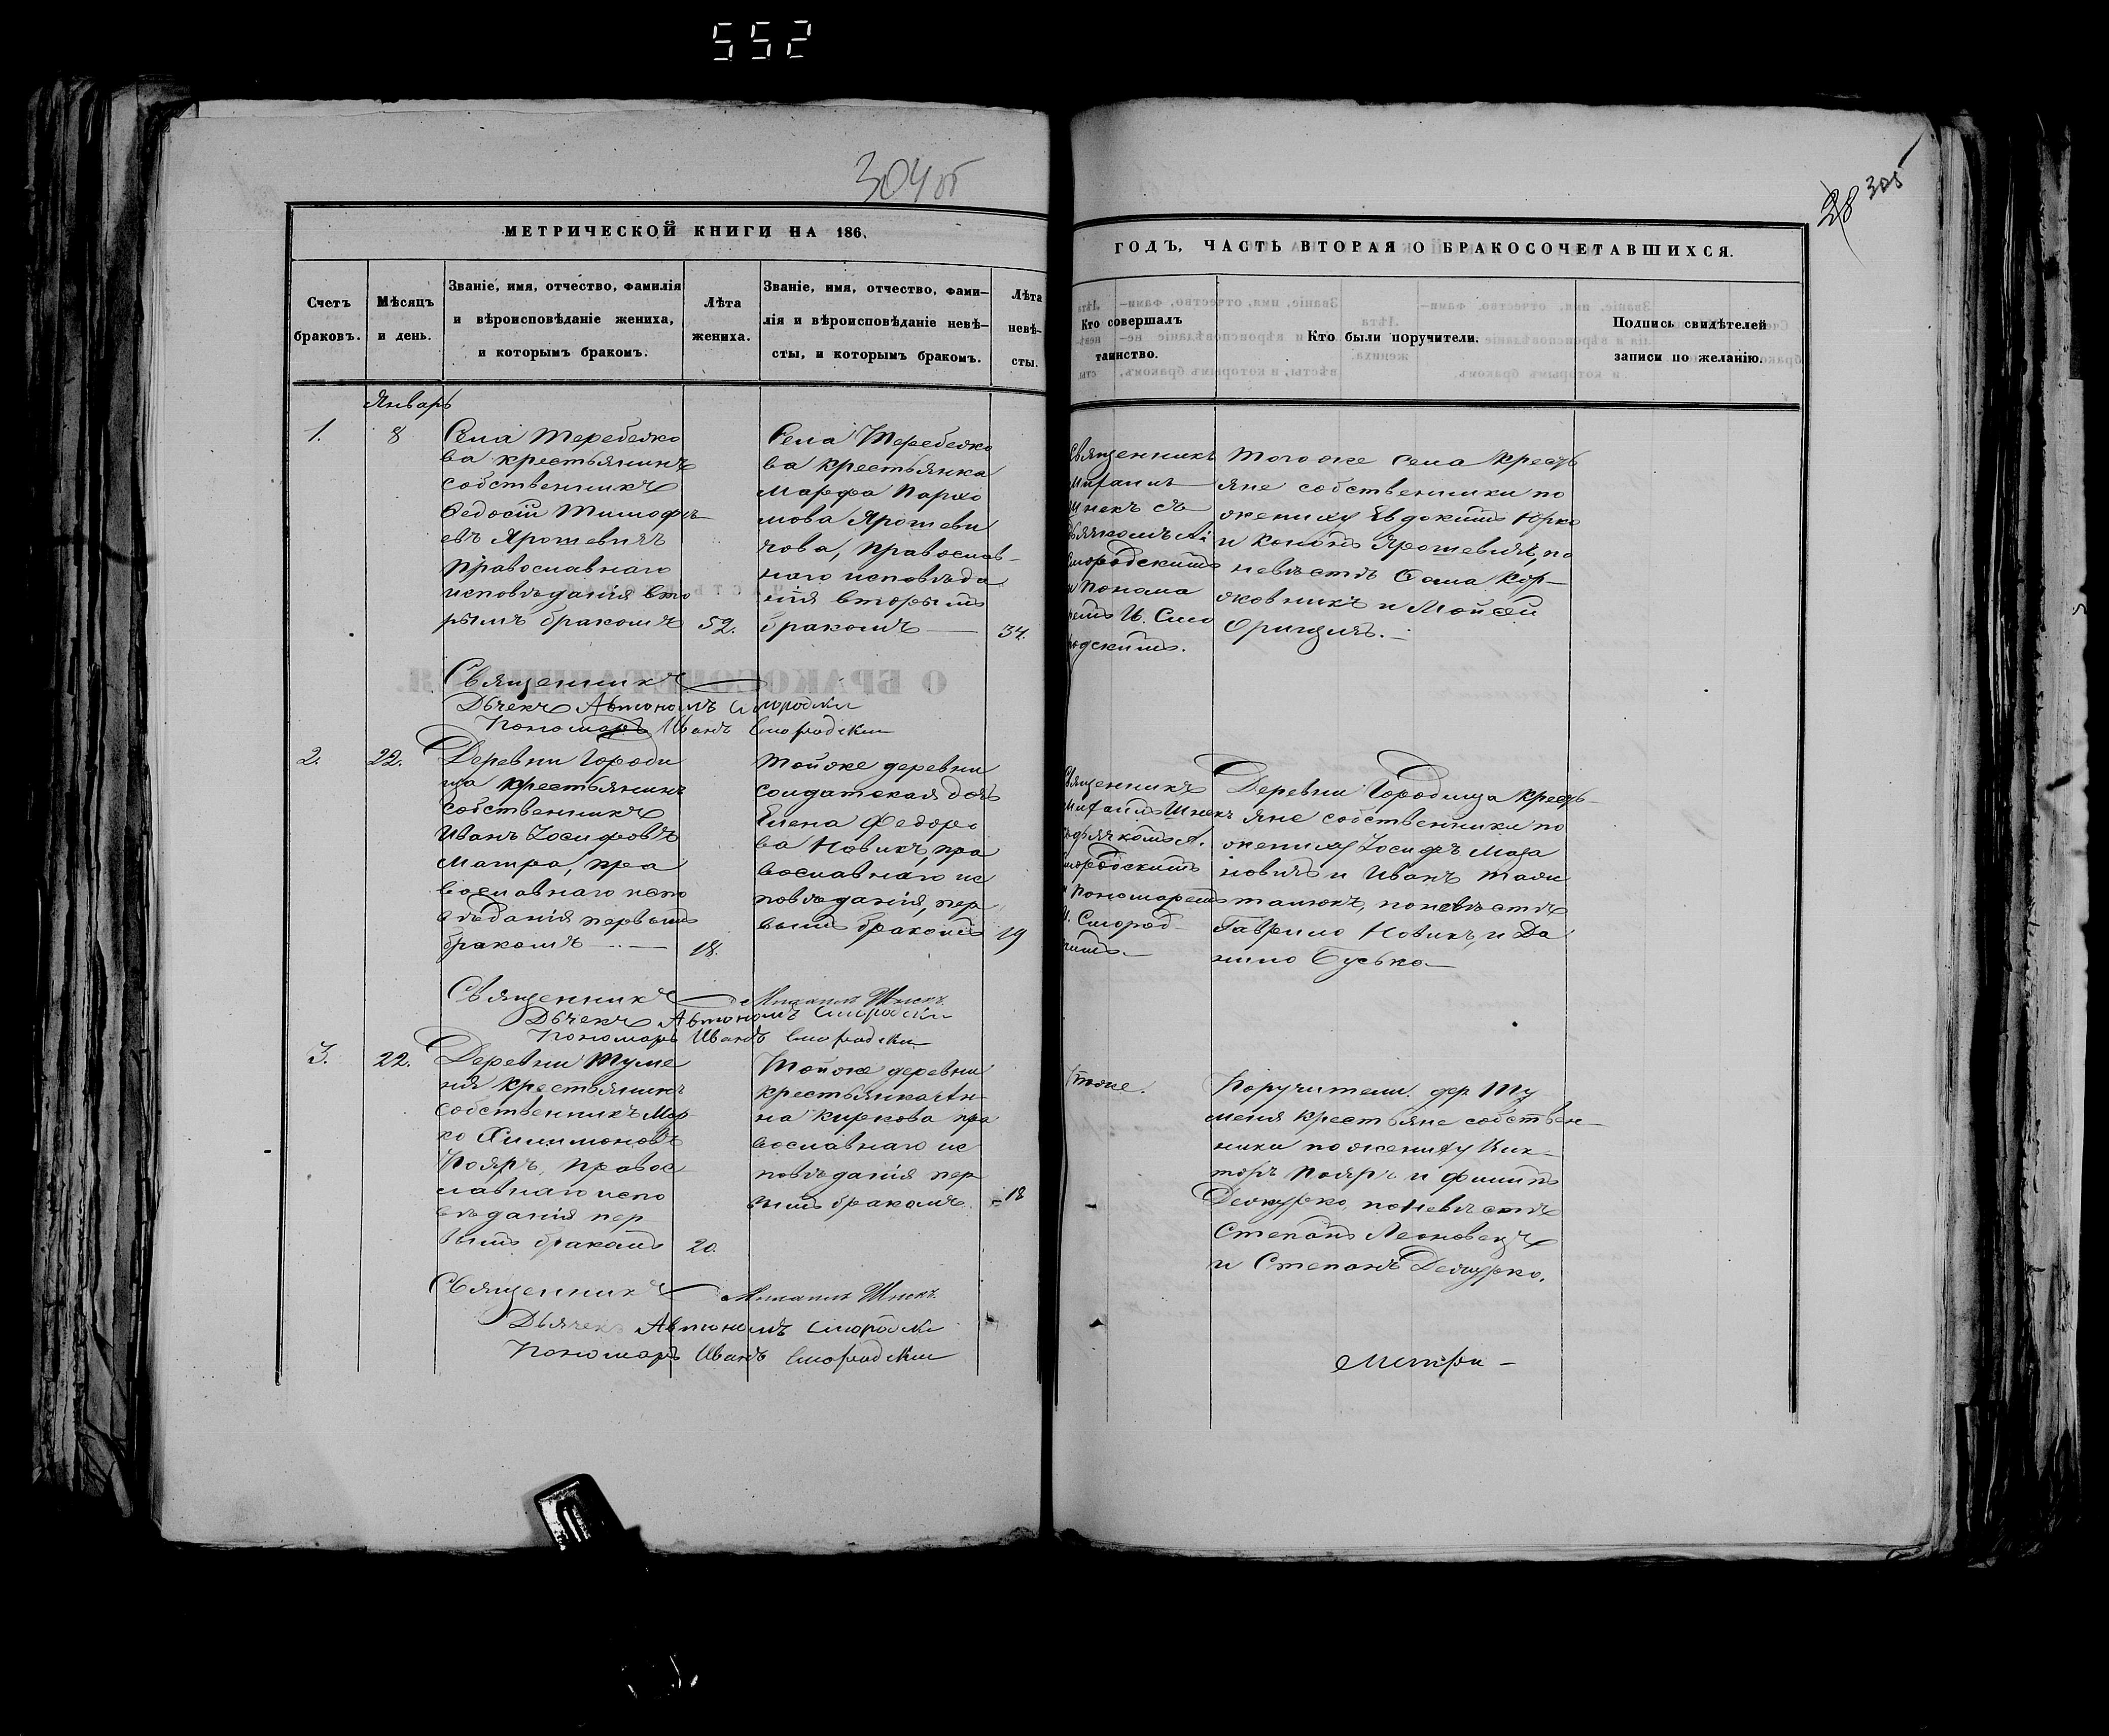 552
304 об
28 305
МЕТРИЧЕСКОЙ КНИГИ НА 186
ГОДЪ, ЧАСТЬ ВТОРАЯ О БРАКОСОЧЕТАВШИХСЯ.
Счетъ
браковъ.
Мѣсяцъ
и день.
Званіе, имя, отчество, фамилія
и вѣроисповѣданіе жениха,
и которымъ бракомъ.
Лѣта
жениха.
Званіе, имя, отчество, фами–
лія и вѣроисповѣданіе невѣ–
сты, и которымъ бракомъ.
Лѣта
невѣ–
сты.
Кто совершалъ
таинство.
Кто были поручители.
Подпись свидѣтелей
записи по желанію.
Январь
1.
8
Села Теребежо
ва крестьянинъ
собственникъ
Ѳедосій Тимофѣ
евъ Ярошевичъ
православнаго
исповѣданія вто
рымъ бракомъ
52.
Села Теребежо
ва крестьянка
Марфа Пархо
мова Ярошеви
чова, православ–
наго исповѣда
нія вторымъ
бракомъ —
34.
Священникъ
Михаилъ
Шнекъ съ
дьячкомъ А:
Смородскимъ
и Понома
ремъ И. Смо
родскимъ.
Того же села кресть
яне собственники по
жениху Евдокимъ Юрко
и Кононъ Ярошевичъ, по
невѣстѣ Ѳома Кор–
жовникъ и Мойсей
Священникъ
Дьчекъ Автономъ Смородски
Пономарь Иванъ Смородски
2.
22.
Деревни Городи
ща крестьянинъ
собственникъ
Иванъ Іосифовъ
Матра, пра
вославнаго испо
вѣданія первымъ
бракомъ —
18.
Тойже деревни
солдатская дочь
Елена Федоро
ва Новикъ, пра
вославнаго ис
повѣданія, пер
вымъ бракомъ
19
Священникъ
Михаилъ Шнекъ
съ дьячкомъ А.
Смородскимъ
и Пономаремъ
И. Смород–
Деревни Городища кресть–
яне собственники по
жениху Іосифъ Маза
новичъ и Иванъ
по невѣстѣ
Гаврило Новикъ, и Да
нило Бусько—
Священникъ Михаилъ Шнекъ
Дьчекъ Автономъ Смородски
Пономарь Иванъ Смородски
3.
22.
Деревни Туме
ня крестьянинъ
собственникъ Мар
ко Филимоновъ
Пояръ, правос
лавнаго испо
вѣданія пер
вымъ бракомъ
20.
Тойже деревни
крестьянка Ан
на Киркова пра
вославнаго ис
повѣданія пер
вымъ бракомъ.
18
Тоже.
Поручители. дер. Ту
меня крестьяне собствен–
ники по жениху Вик–
торъ Пояръ и Филипъ
Дешурко, по невѣстѣ
Степанъ Леоновецъ
и Степанъ Дешурко.
Священникъ Михаилъ Шнекъ.
Дьячекъ Автономъ Смородски
Пономарь Иванъ Смородски
Метри –